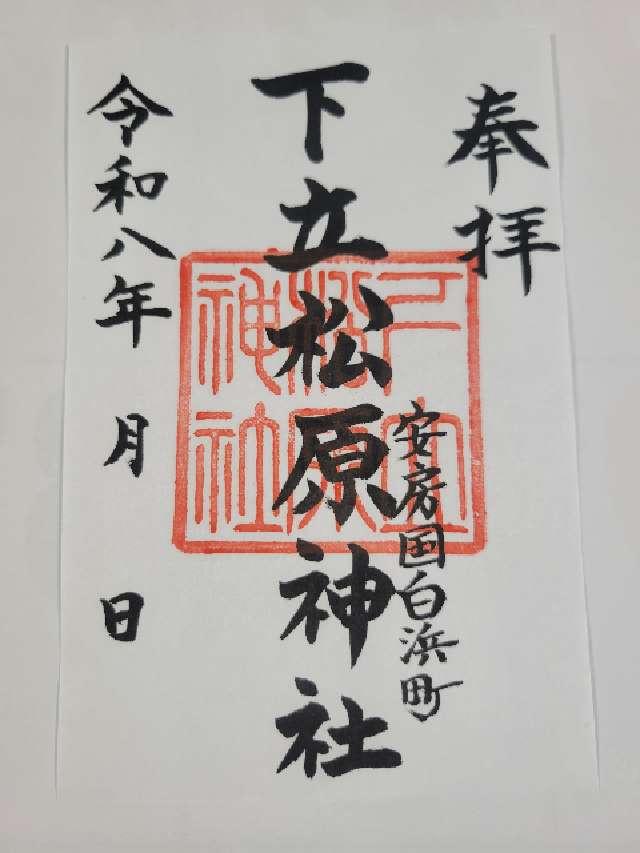 奉拝
安房国白浜町
下立松原神社
令和八年 月 日
下立
松原
神社